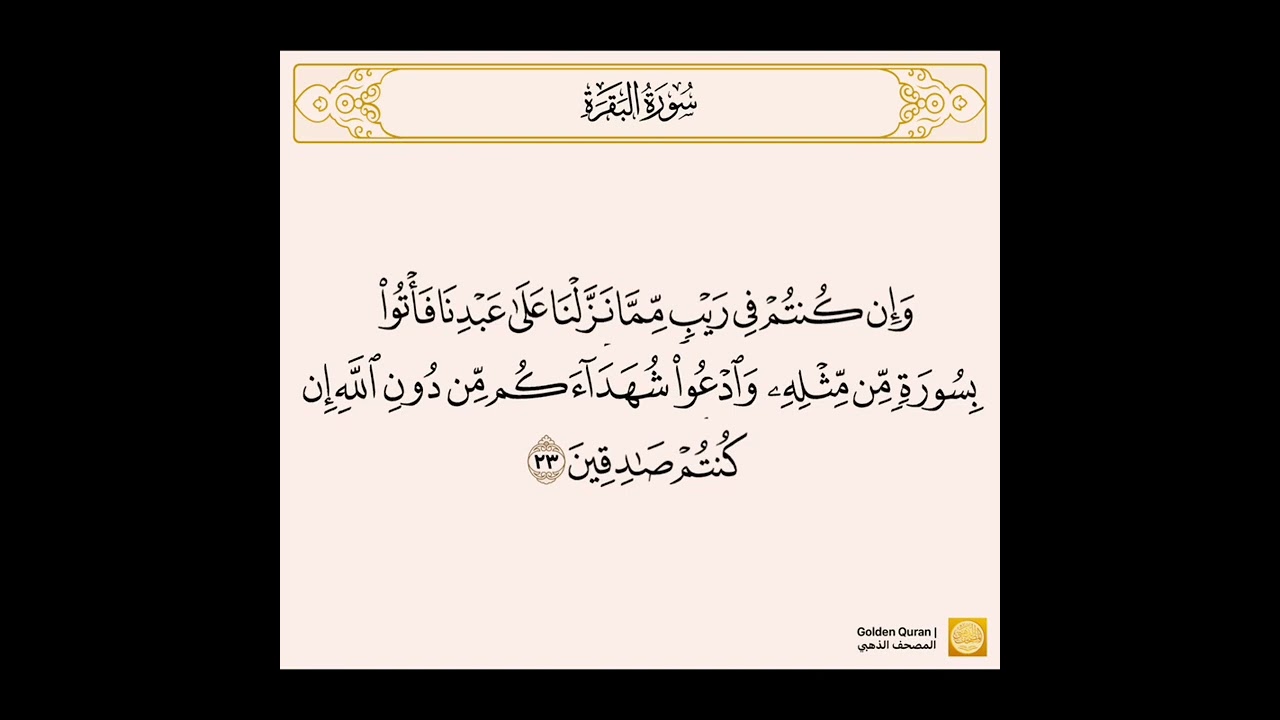 سُورَةُ البَقَرَةِ
وَإِن كُنتُمۡ فِي رَيۡبٖ مِّمَّا نَزَّلۡنَا عَلَىٰ عَبۡدِنَا فَأۡتُواْ
بِسُورَةٖ مِّن مِّثۡلِهِۦ وَٱدۡعُواْ شُهَدَآءَكُم مِّن دُونِ ٱللَّهِ إِن
كُنتُمۡ صَٰدِقِينَ ٢٣
Golden Quran |
المصحف الذهبي